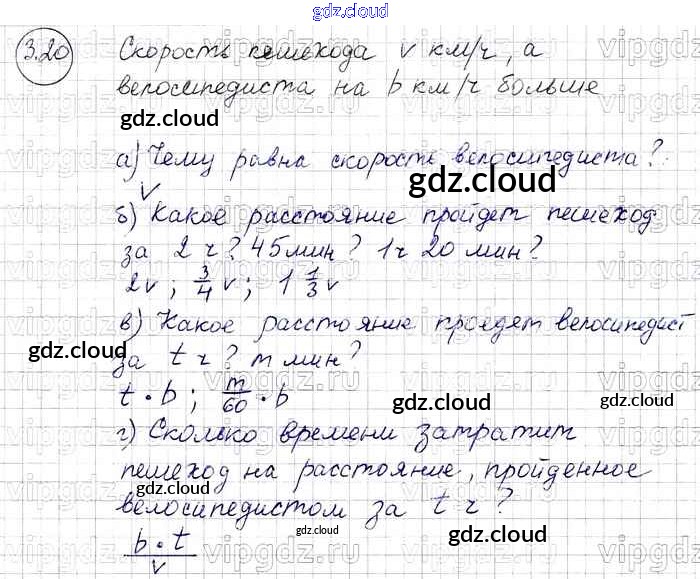 gdz.cloud
3.20 Скорость пешехода v км/ч, а
велосипедиста на b км/ч больше
gdz.cloud
а) Чему равна скорость велосипедиста?
v
gdz.cloud
б) Какое расстояние пройдет пешеход
за 2 ч? 45 мин? 1ч 20 мин?
2v ; 3/4 v ; 1 1/3 v
в) Какое расстояние проедет велосипедист
gdz.cloud за t ч? m мин? gdz.cloud
t · b ; m/60 · b
gdz.cloud gdz.cloud
г) Сколько времени затратит
пешеход на расстояние, пройденное
gdz.cloud
велосипедистом за t ч?
gdz.cloud gdz.cloud
b · t / v